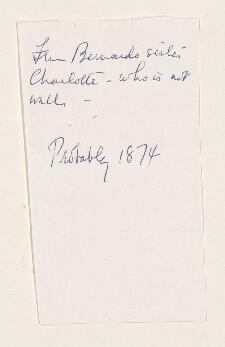 From Bernardo sister
Charlotte - who is not
well -
Probably 1874